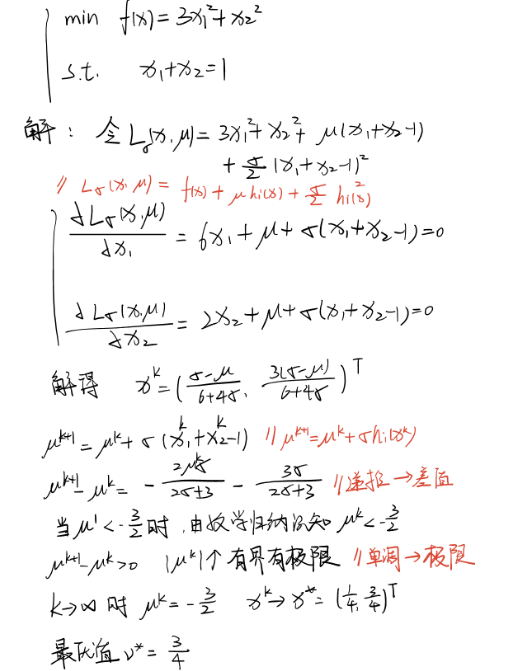 min f(x)=3x₁²+x₂²
s.t. x₁+x₂=1
解: 令 Lσ(x,μ)=3x₁²+x₂²+μ(x₁+x₂-1)
+ σ/2 (x₁+x₂-1)²
// Lσ(x,μ)= f(x)+μhᵢ(x)+ σ/2 hᵢ²(x)
dLσ(x,μ)/dx₁ = 6x₁+μ+σ(x₁+x₂-1)=0
dLσ(x,μ)/dx₂ = 2x₂+μ+σ(x₁+x₂-1)=0
解得 xᵏ=((σ-μ)/(6+4σ), 3(σ-μ)/(6+4σ))ᵀ
μᵏ⁺¹=μᵏ+σ(x₁ᵏ+x₂ᵏ-1) // μᵏ⁺¹=μᵏ+σhᵢ(xᵏ)
μᵏ⁺¹-μᵏ= - 2μᵏσ/(2σ+3) - 3σ/(2σ+3) // 递推→差值
当μ¹<-3/2时,由数学归纳法知 μᵏ<-3/2
μᵏ⁺¹-μᵏ>0 {μᵏ}个有界有极限 // 单调→极限
k→∞时 μᵏ=-3/2 xᵏ→x*=(1/4, 3/4)ᵀ
最优值 v*= 3/4